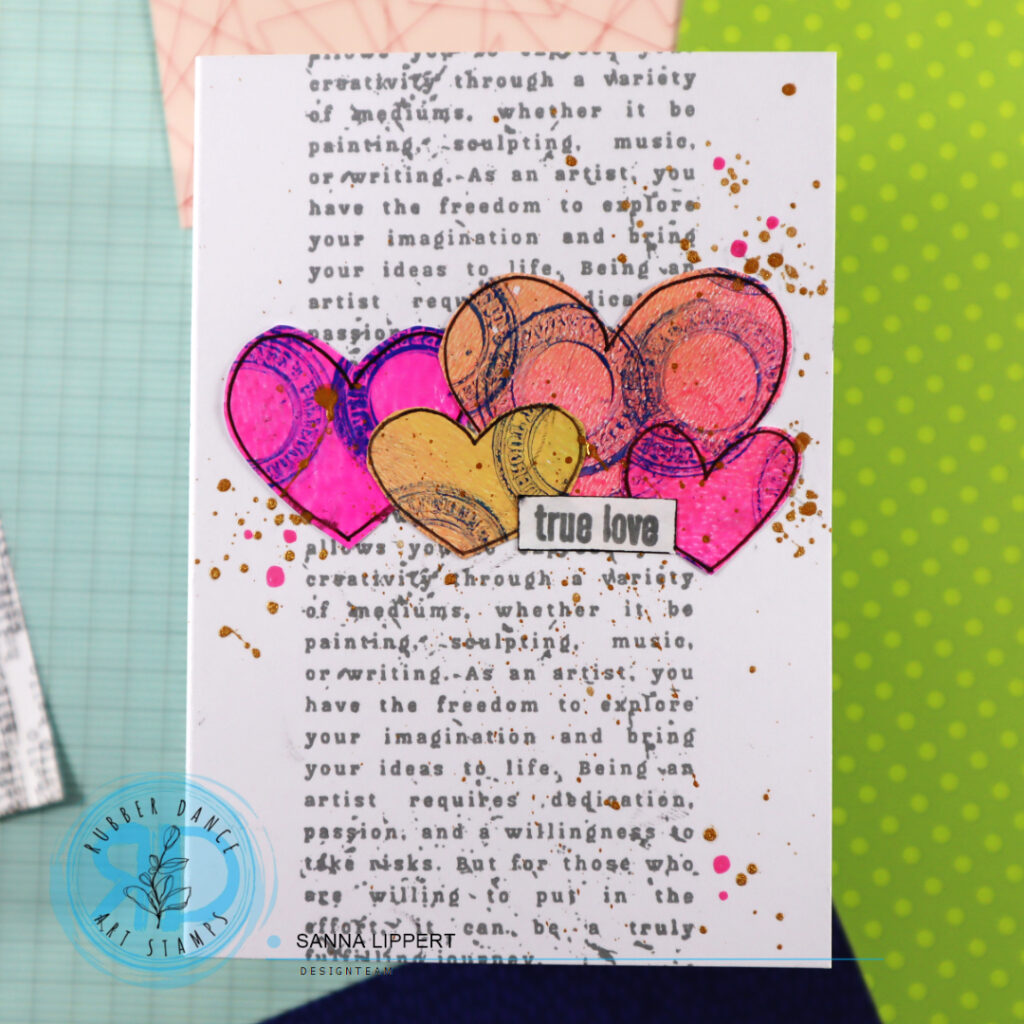 allows you to explore your
creativity through a variety
of mediums, whether it be
painting, sculpting, music,
or writing. As an artist, you
have the freedom to explore
your imagination and bring
your ideas to life. Being an
artist
passion
true love
allows you to
creativity through a variety
of mediums, whether it be
painting, sculpting, music,
or writing. As an artist, you
have the freedom to explore
your imagination and bring
your ideas to life. Being an
artist requires dedication,
passion, and a willingness to
take risks. But for those who
are willing to put in the
effort, it can be a truly
fulfilling journey.
RUBBER DANCE
RD
ART STAMPS
SANNA LIPPERT
DESIGNTEAM